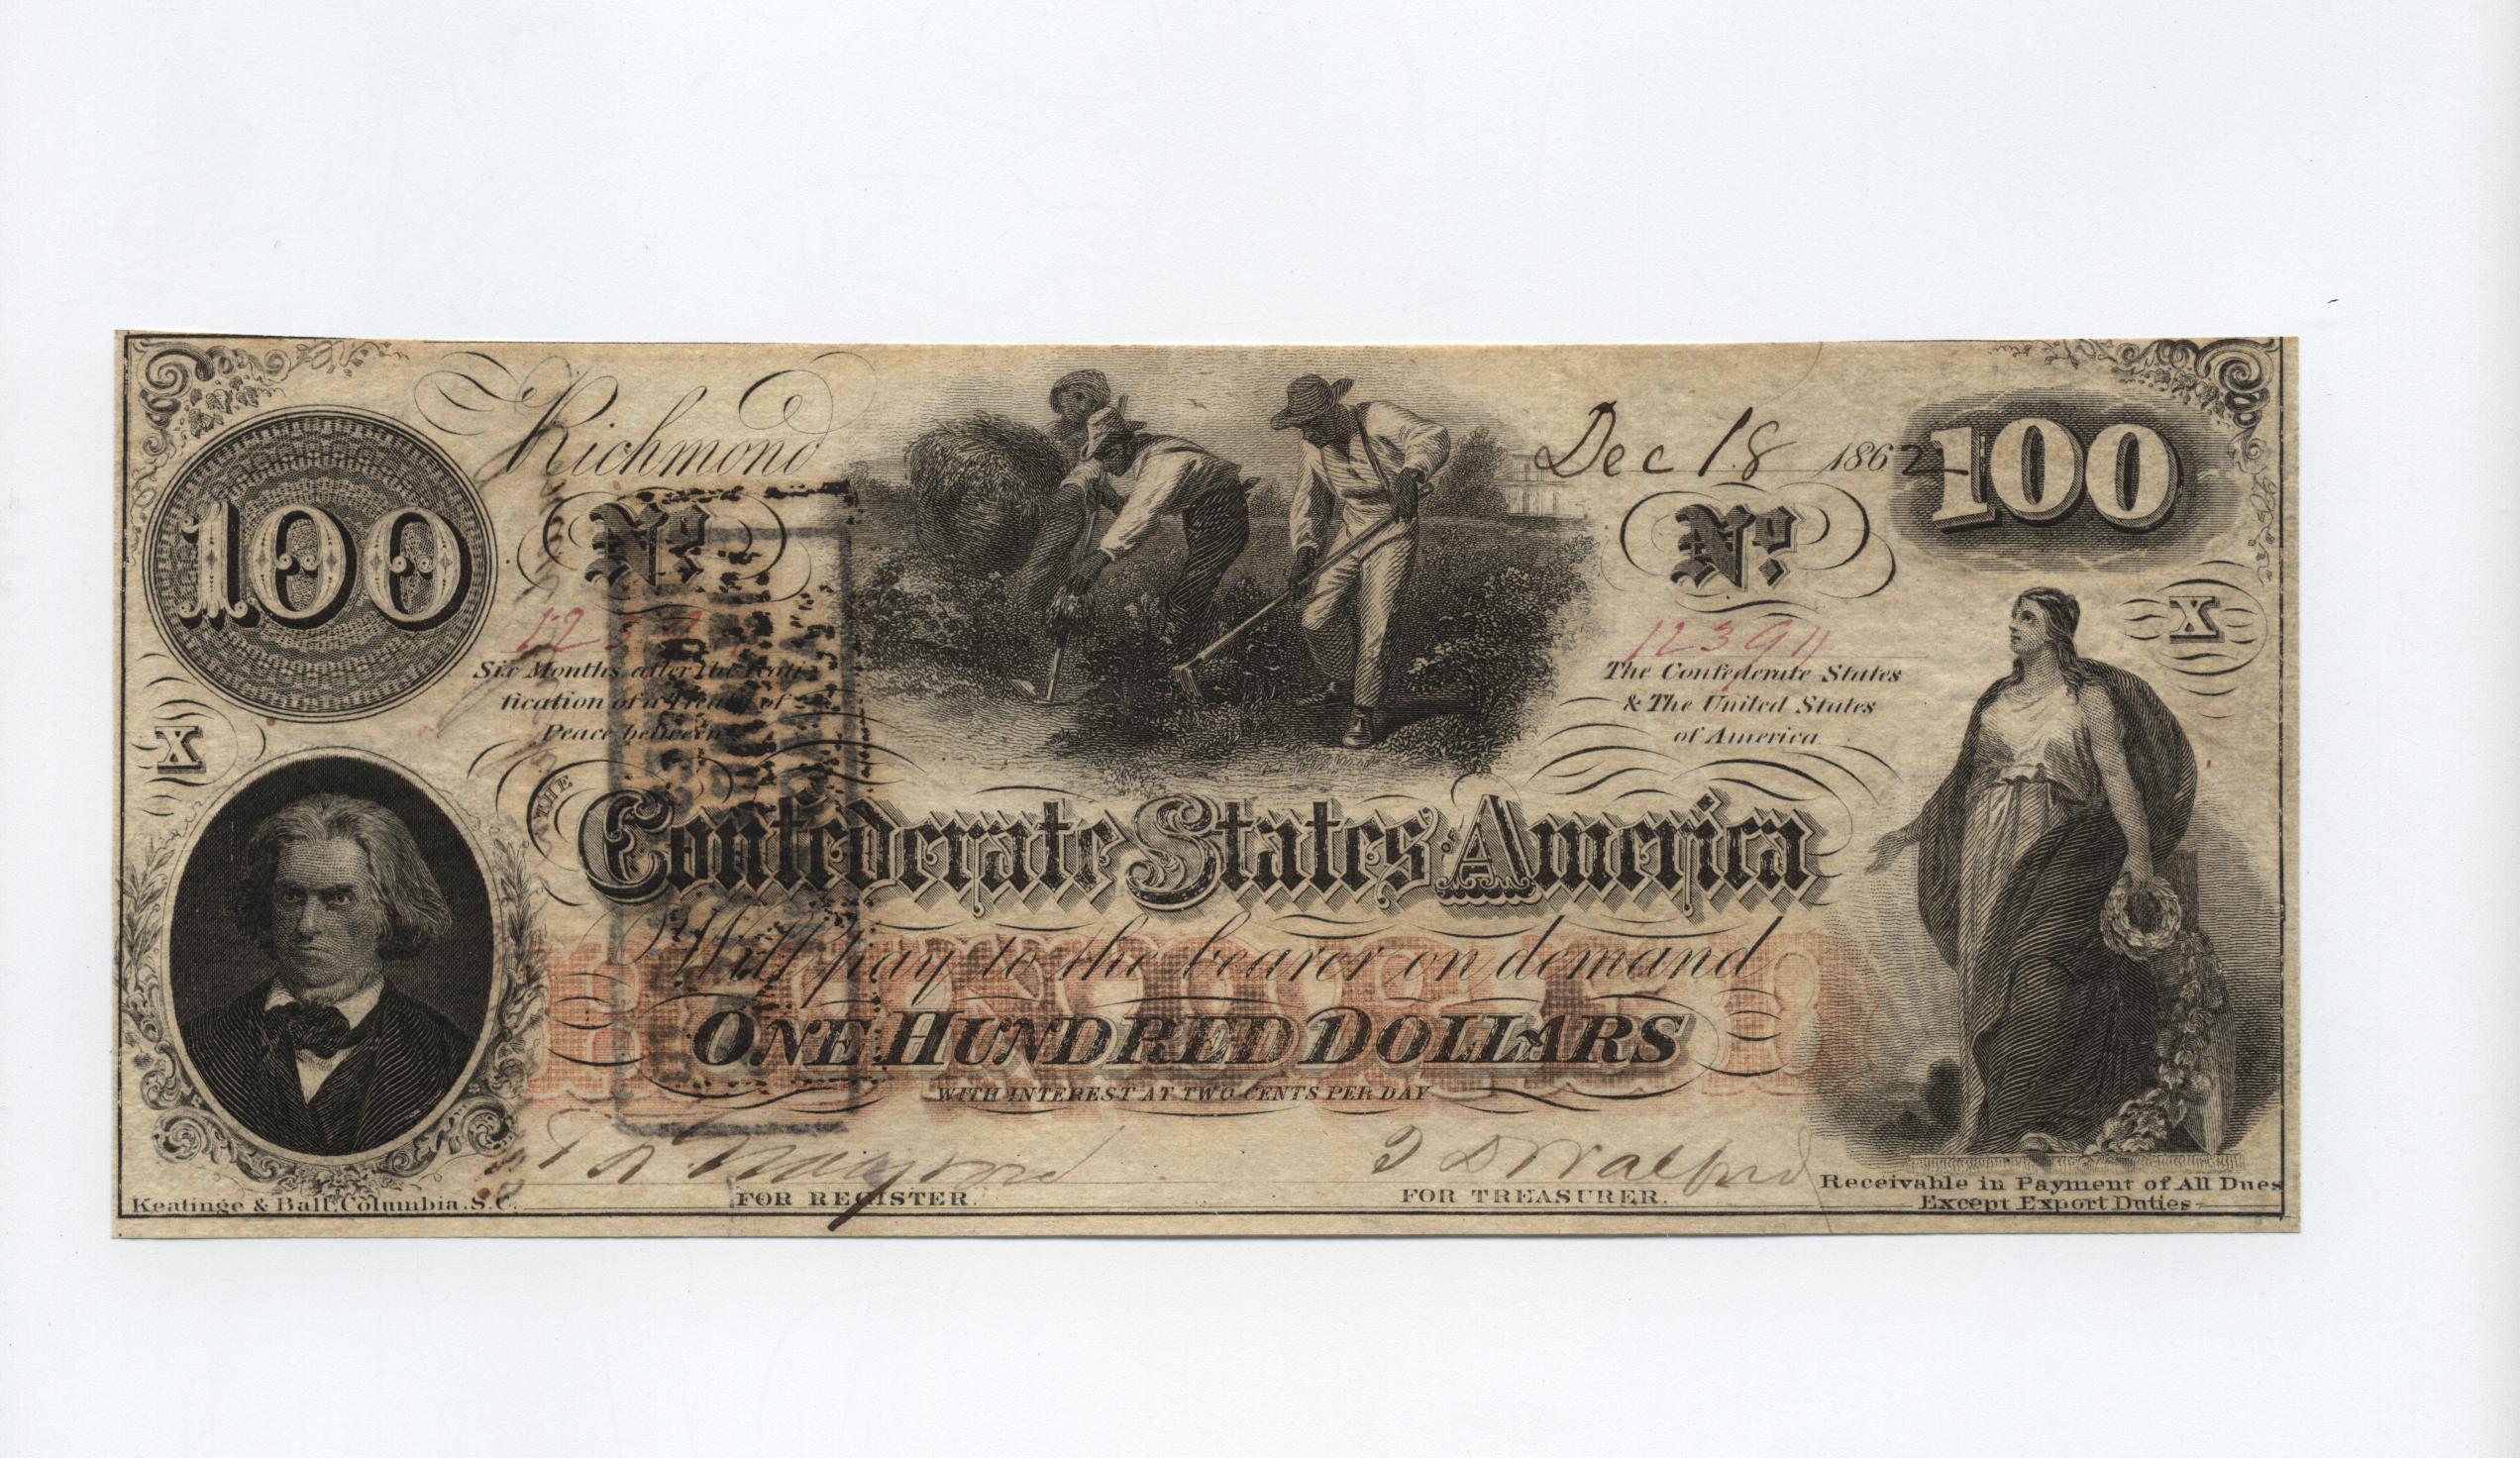 100
Richmond
Dec 18 1862
100
No.
No.
12391
X
X
Six Months after the Rati-
fication of a Treaty of
Peace between
The Confederate States
& The United States
of America
THE
Confederate States of America
Will pay to the bearer on demand
HUNDRED
ONE HUNDRED DOLLARS
WITH INTEREST AT TWO CENTS PER DAY
FOR REGISTER.
FOR TREASURER.
Keatinge & Ball, Columbia. S.C.
Receivable in Payment of All Dues
Except Export Duties